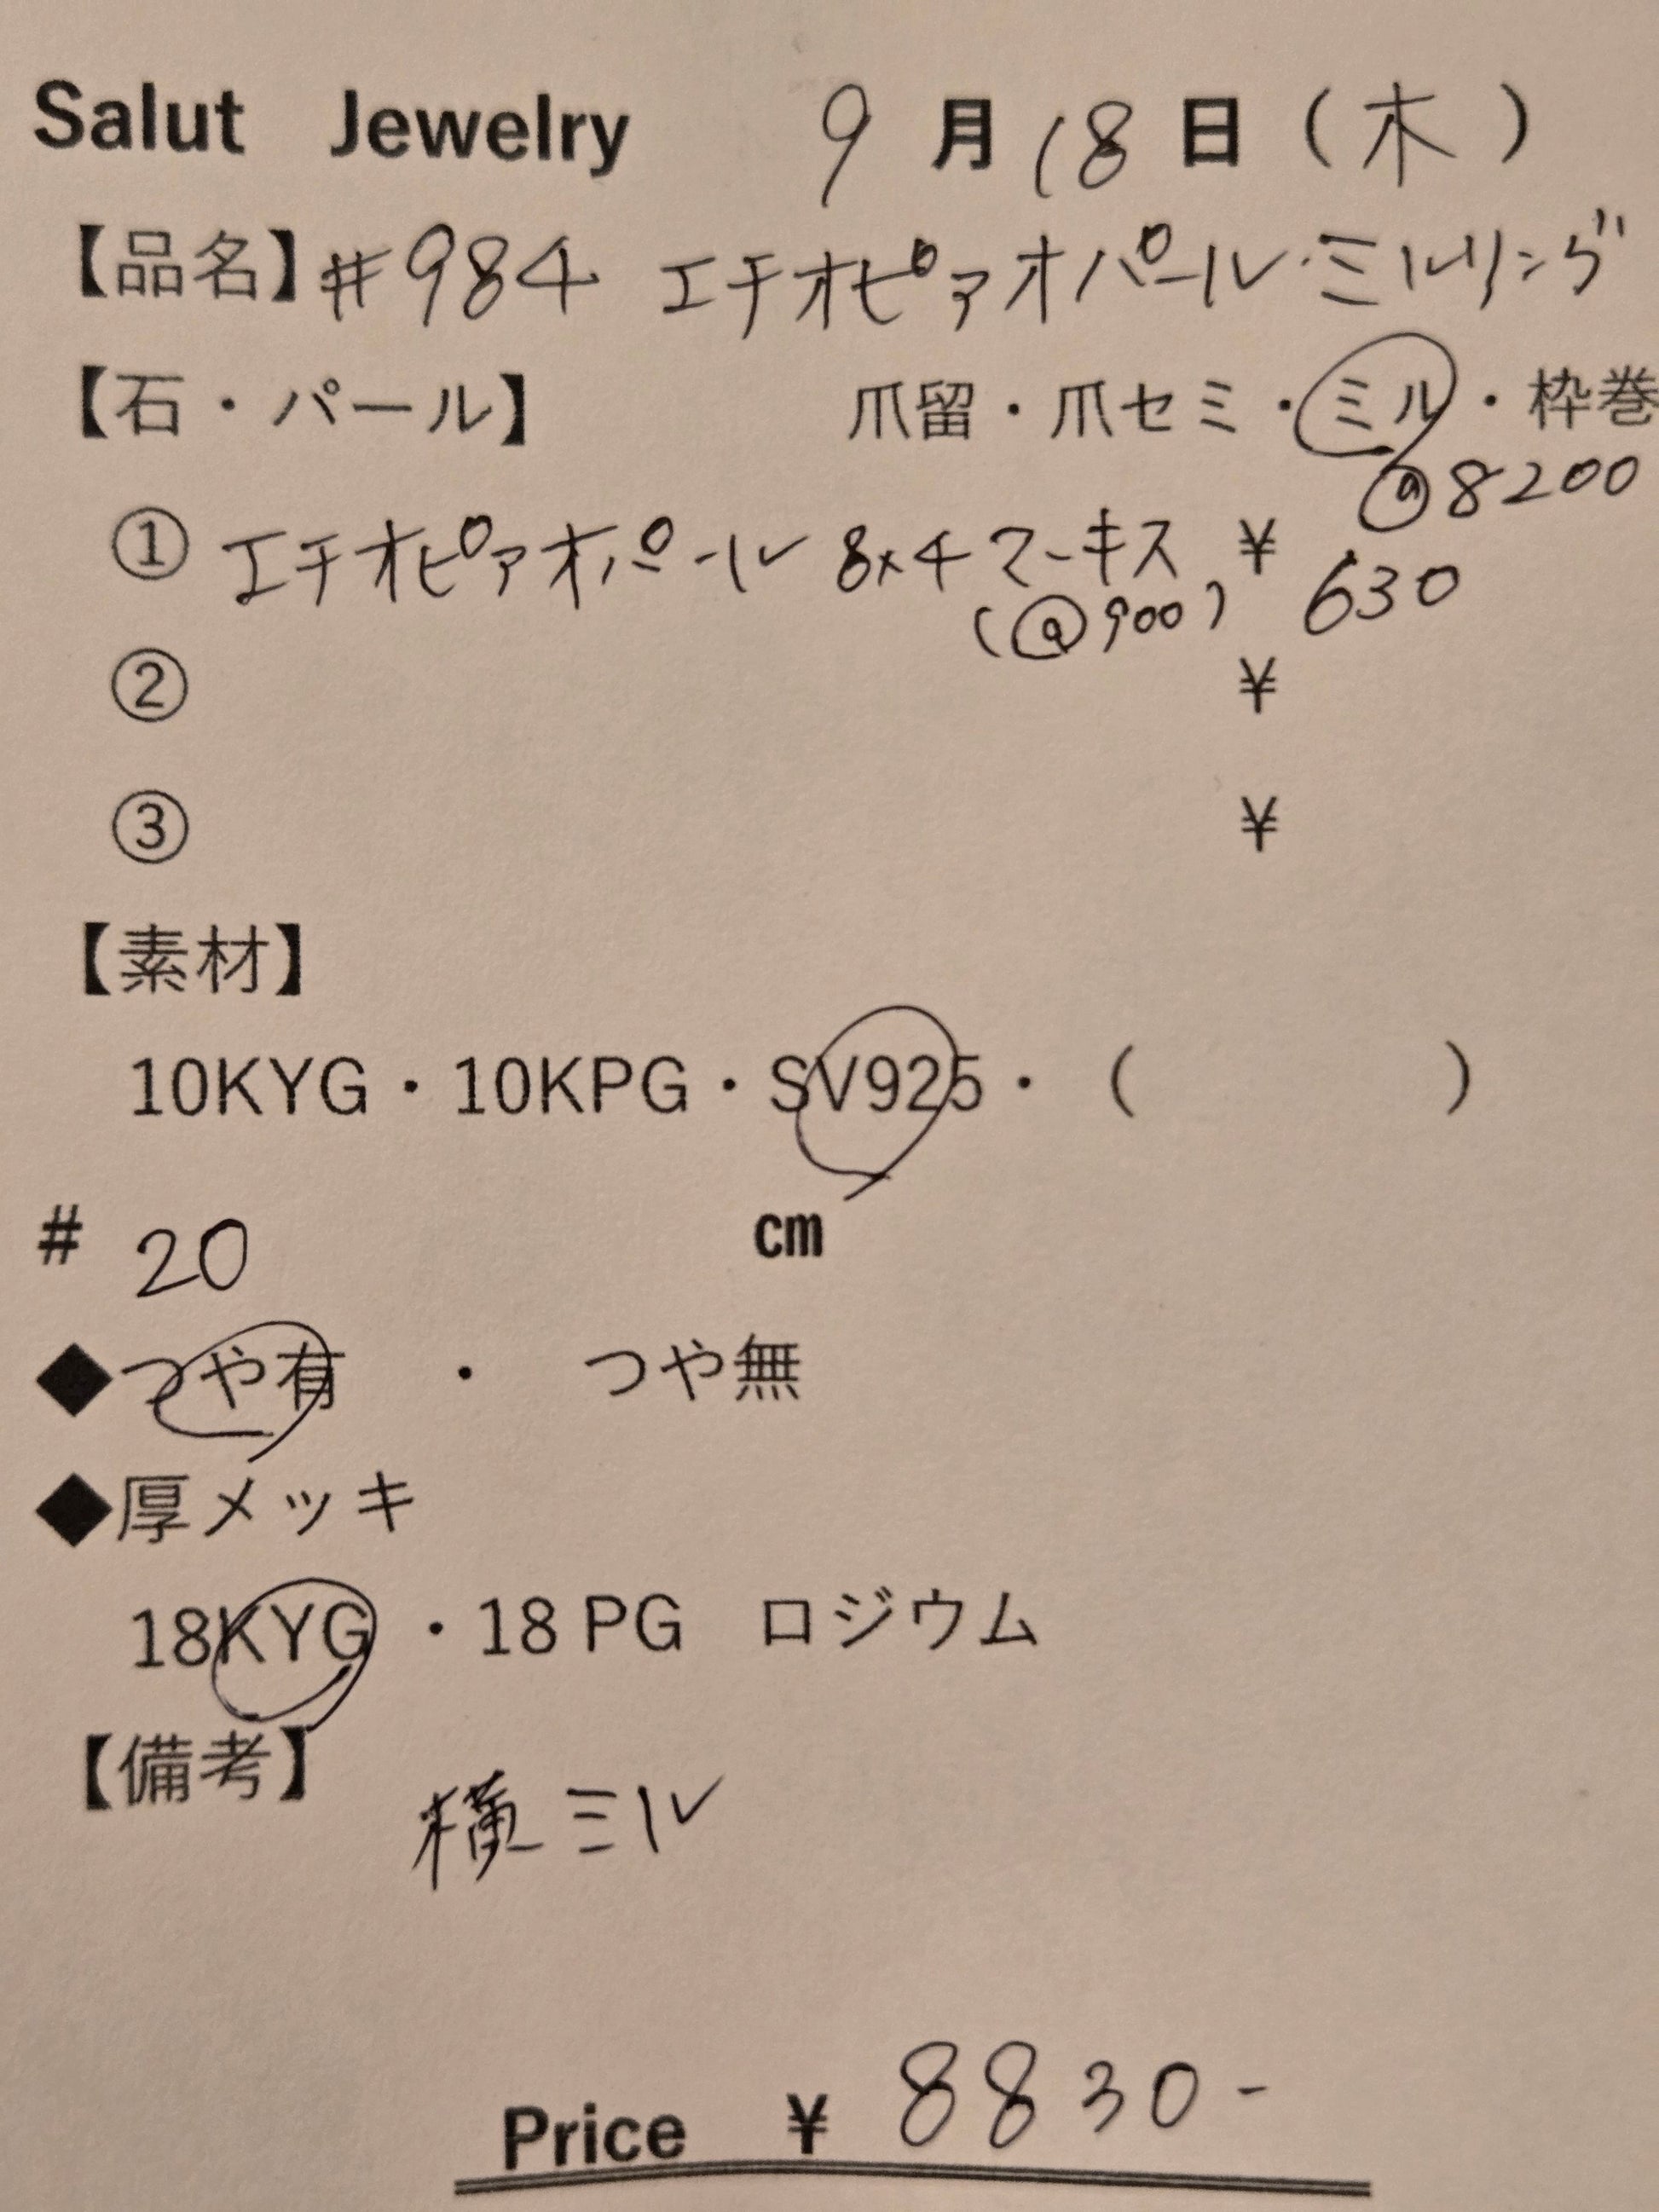 Salut Jewelry 9月18日(木)
【品名】#984 エチオピアオパール・ミルリング
【石・パール】 爪留・爪セミ・ミル・枠巻
@8200
①エチオピアオパール 8×4 マーキス ¥630
(@900)
② ¥
③ ¥
【素材】
10KYG・10KPG・SV925・( )
# 20 cm
◆つや有 ・ つや無
◆厚メッキ
18KYG ・18 PG ロジウム
【備考】
横ミル
Price ¥ 8830-